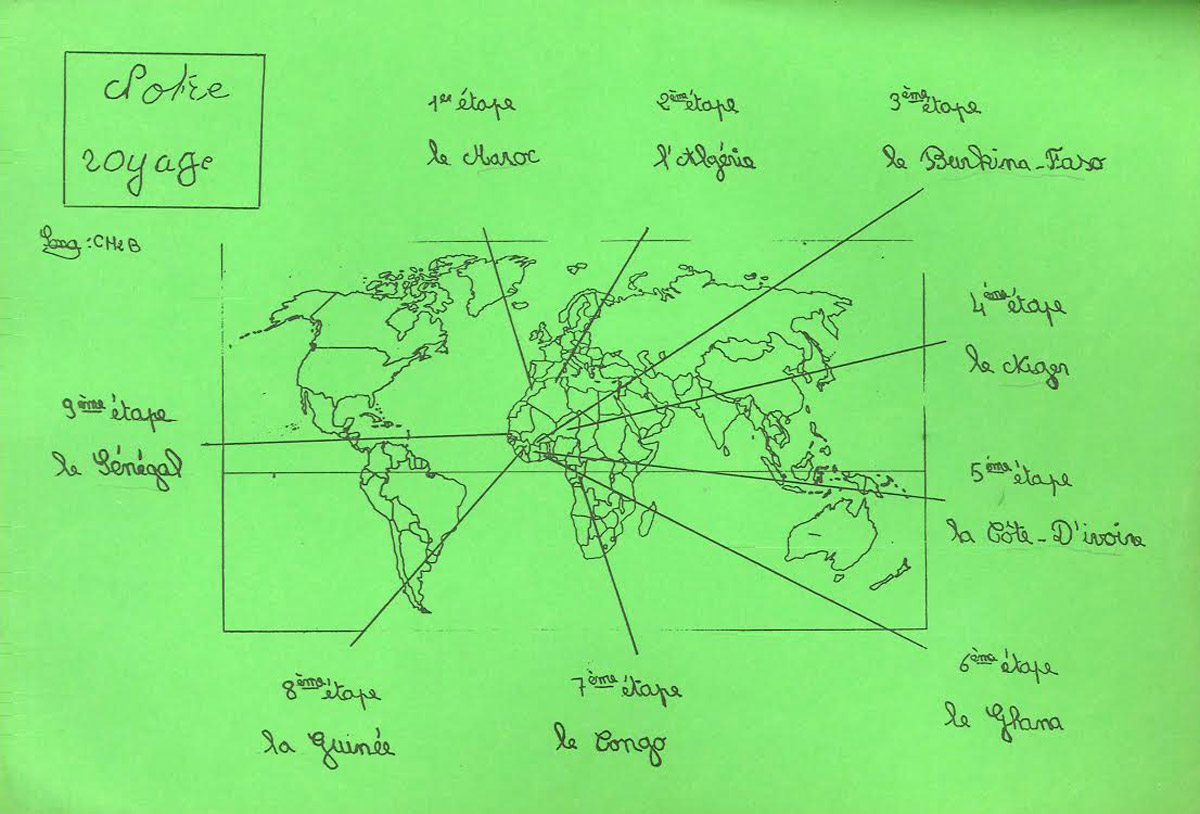 Notre
voyage
1er étape
le Maroc
2ème étape
l'Algérie
3ème étape
le Burkina-Faso
:CM2 B
4ème étape
le Niger
9ème étape
le Sénégal
5ème étape
la Côte-D'ivoire
6ème étape
le Ghana
8ème étape
la Guinée
7ème étape
le Congo